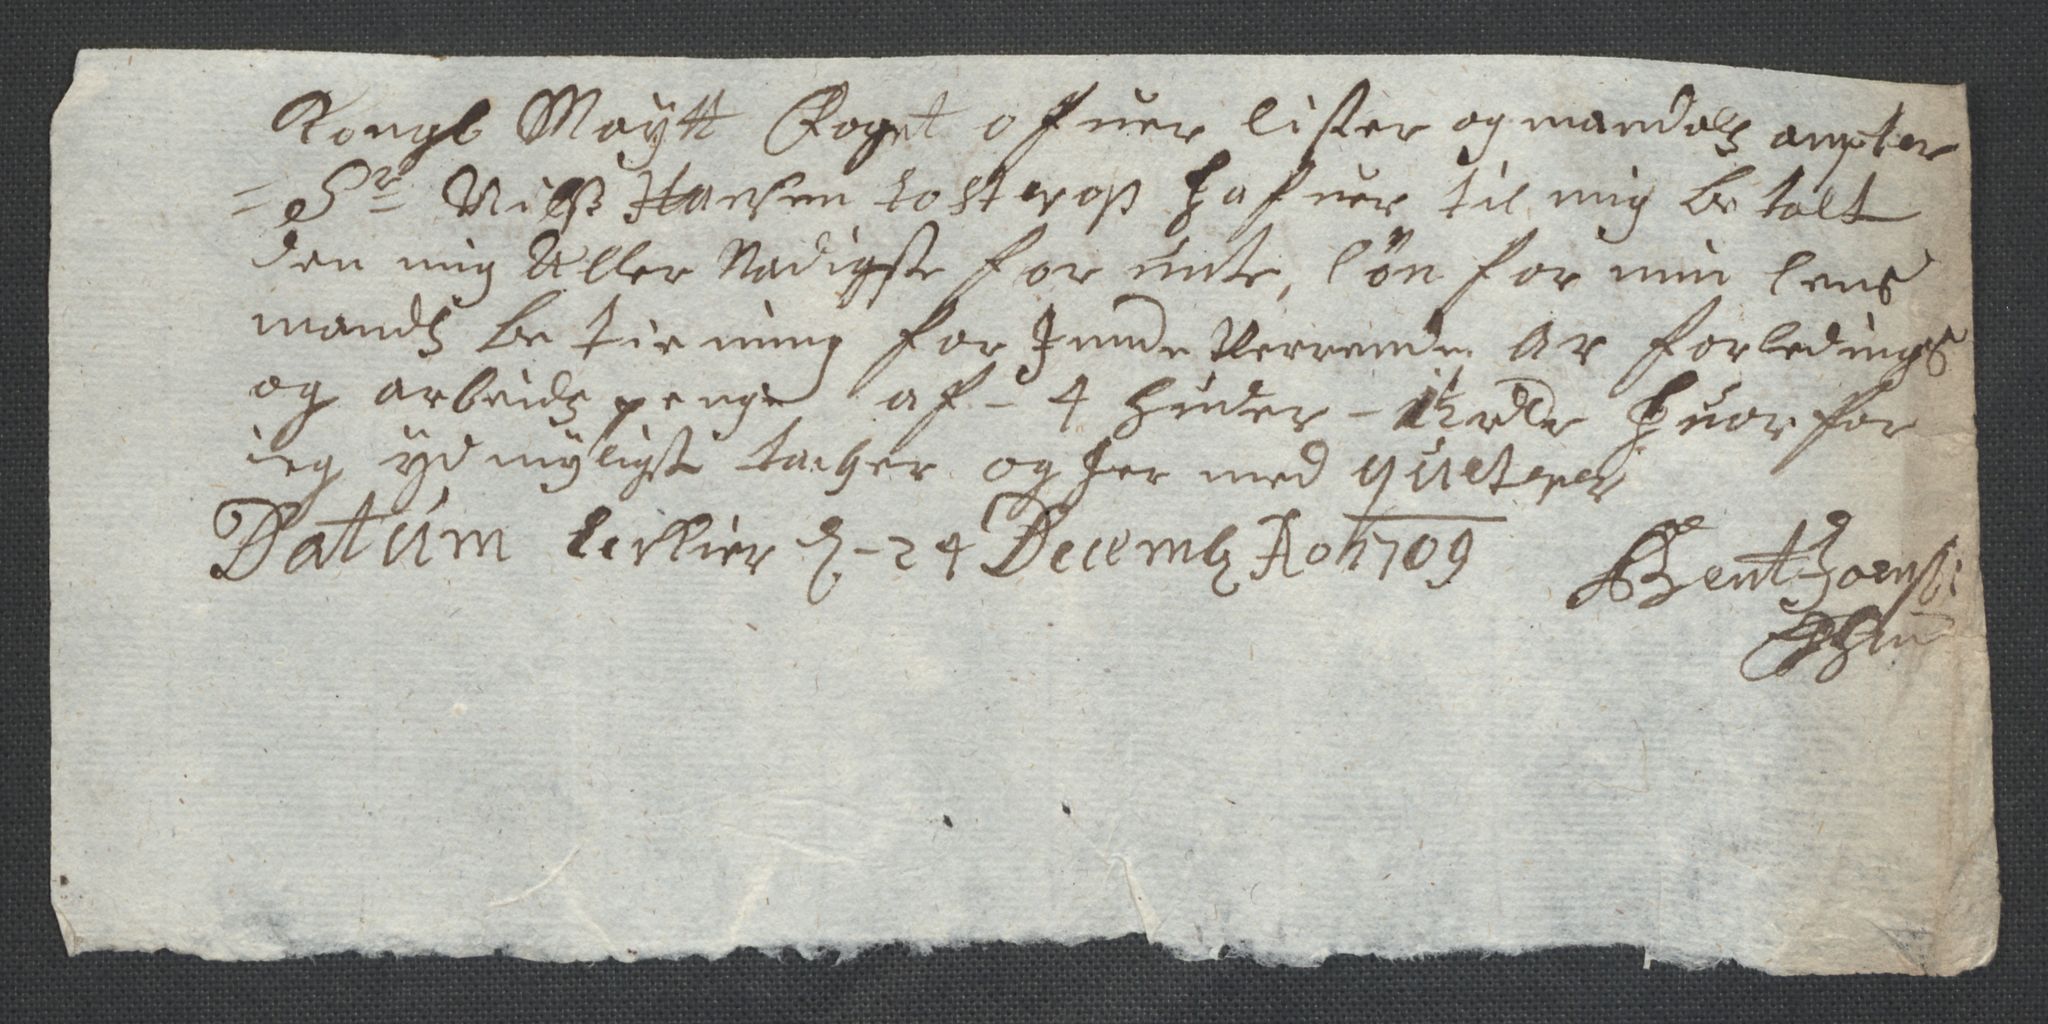 Kongl Maÿtt Foget ofuer lister og mandals ampter
= Sr Nilß Hansen tostrop hafuer til mig betalt
den mig Aller Nadigste for unte, lön for min lens
mands betiening for Inde Werrende Ar forledings
og arbeids penge af - 4 huder - 1½ rdlr huorfor
ieg ÿdmÿligst tacher og her med quiterer
Datum d - 24 Decemb Ao 1709
Bent